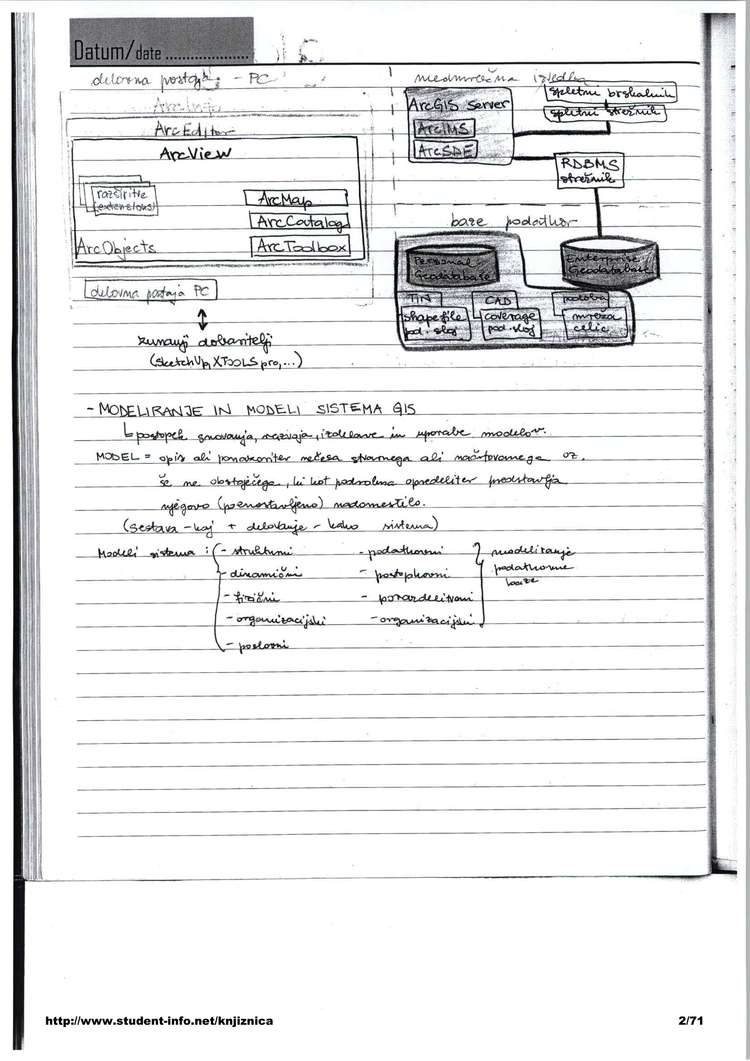 Datum/date ....................
delovna postaja - PC
ArcInfo
ArcEditor
ArcView
razširitve
(extensions)
ArcMap
ArcCatalog
ArcToolbox
ArcObjects
delovna postaja PC
zunanji dobavitelji
(SketchUp, XTOOLS pro,...)
medmrežna izvedba
spletni brskalnik
spletni strežnik
ArcGIS Server
ArcIMS
ArcSDE
RDBMS
strežnik
baze podatkov
Personal
Geodatabase
Enterprise
Geodatabase
TIN
CAD
podoba
shapefile
pod. sloj
coverage
pod. sloj
mreža
celic
- MODELIRANJE IN MODELI SISTEMA GIS
postopek snovanja, razvoja, izdelave in uporabe modelov.
MODEL = opis ali ponazoritev nečesa stvarnega ali načrtovanega oz.
še ne obstoječega, ki kot podrobna opredelitev predstavlja
njegovo (poenostavljeno) nadomestilo.
(sestava - kaj + delovanje - kako sistema)
Modeli sistema : - strukturni - podatkovni modeliranje
- dinamični - postopkovni podatkovne
baze
- fizični - porazdelitveni
- organizacijski - organizacijski
- poslovni
http://www.student-info.net/knjiznica 2/71